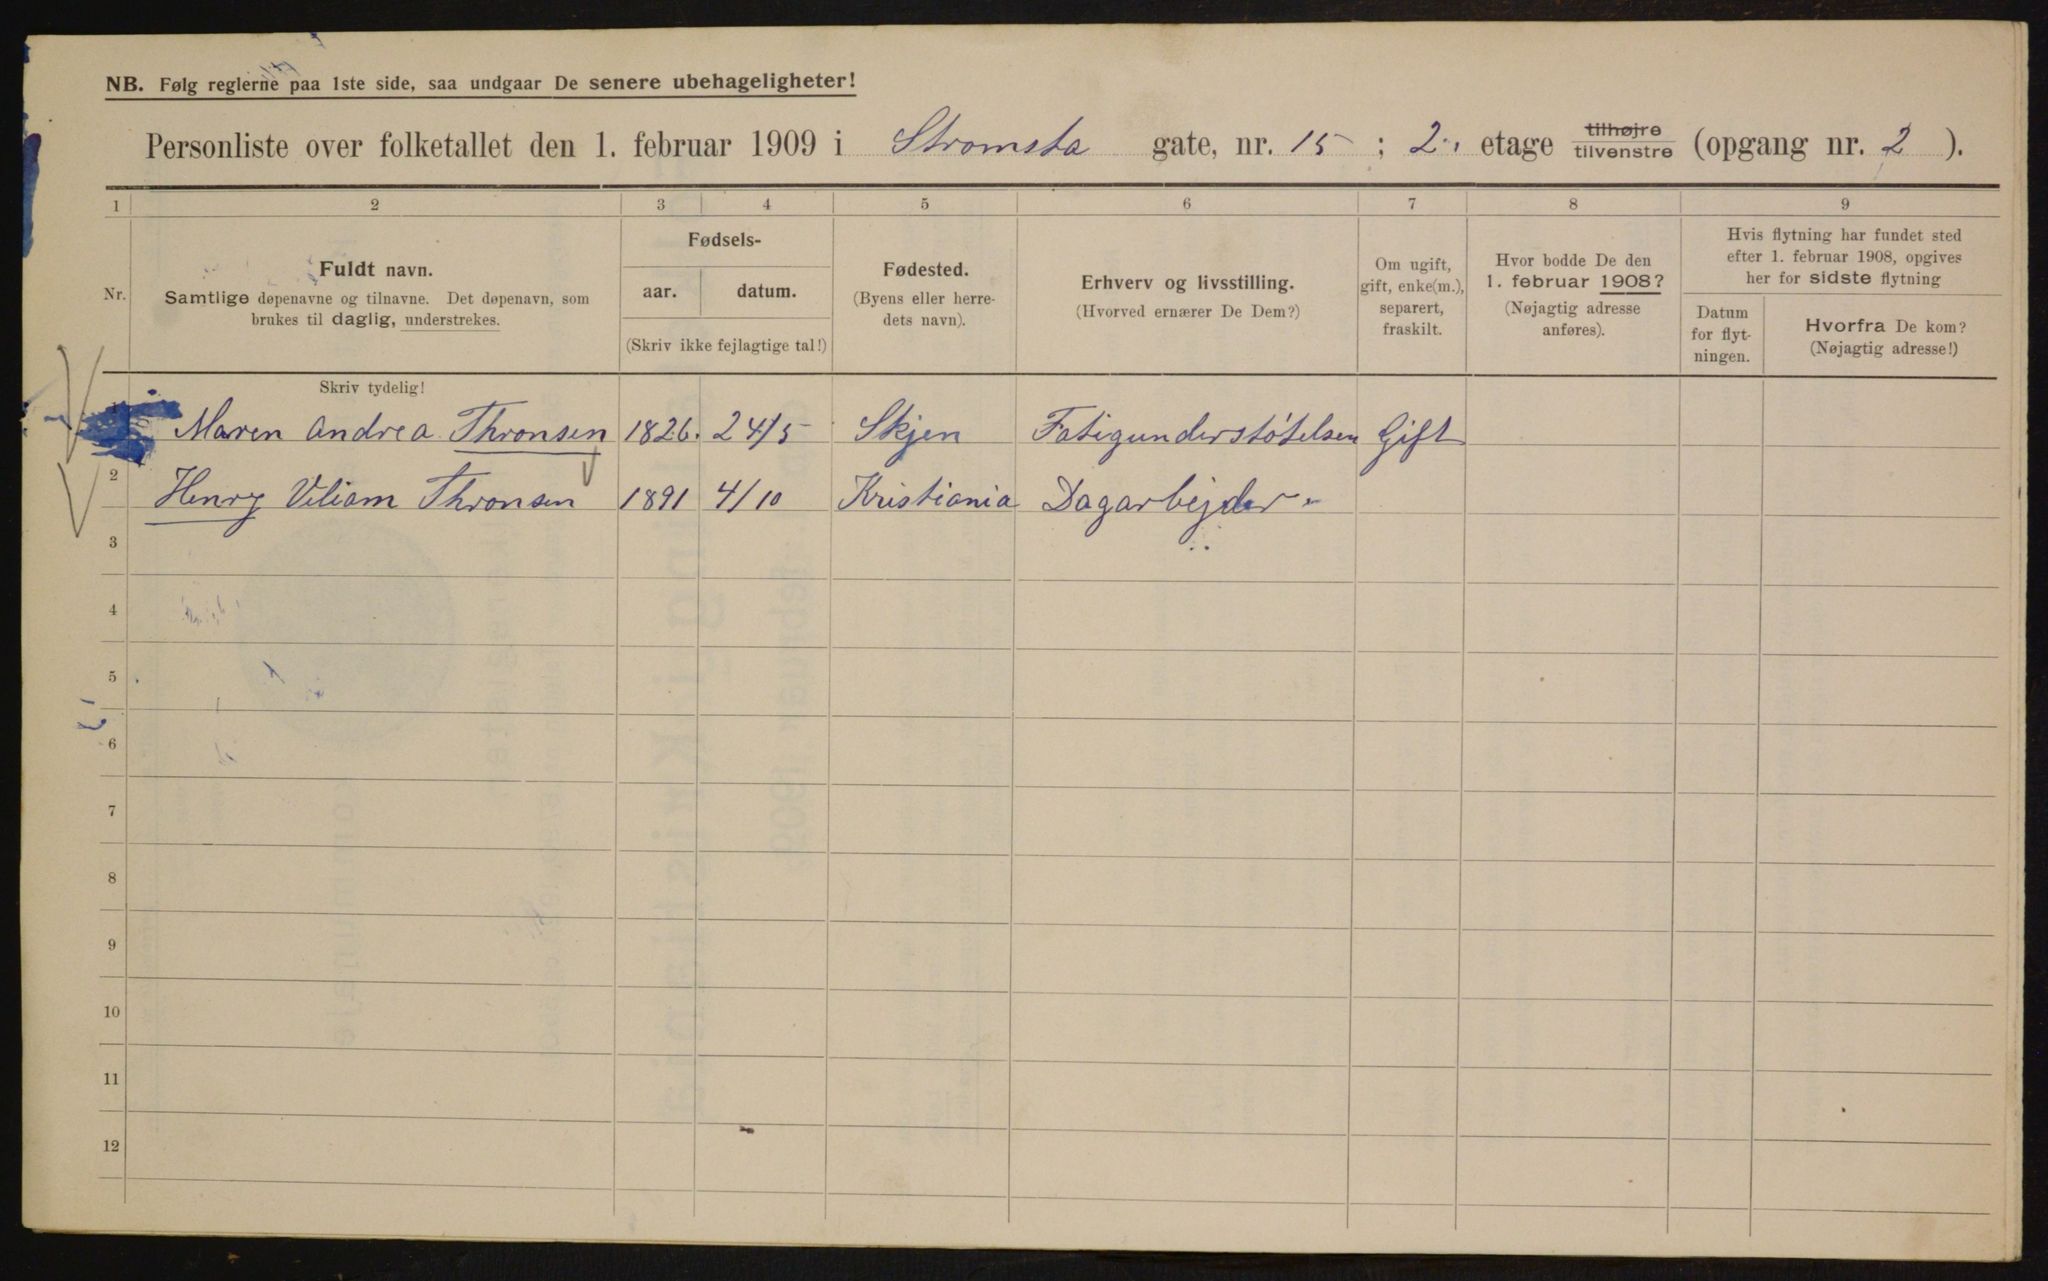 NB. Følg reglerne paa 1ste side, saa undgaar De senere ubehageligheter!
Personliste over folketallet den 1. februar 1909 i Stromsta gate, nr. 15 ; 2. etage tilhøjre tilvenstre (opgang nr. 2 ).
1 2 3 4 5 6 7 8 9
Nr.
Fuldt navn.
Samtlige døpenavne og tilnavne. Det døpenavn, som
brukes til daglig, understrekes.
Skriv tydelig!
Fødsels-
aar. datum.
(Skriv ikke fejlagtige tal!)
Fødested.
(Byens eller herre-
dets navn).
Erhverv og livsstilling.
(Hvorved ernærer De Dem?)
Om ugift,
gift, enke(m.),
separert,
fraskilt.
Hvor bodde De den
1. februar 1908?
(Nøjagtig adresse
anføres).
Hvis flytning har fundet sted
efter 1. februar 1908, opgives
her for sidste flytning
Datum
for flyt-
ningen.
Hvorfra De kom?
(Nøjagtig adresse!)
1 Maren Andrea Thronsen 1826. 24/5 Skjen Fatigunderstøtelsen Gift
2 Henry Viliam Thronsen 1891 4/10 Kristiania Dagarbejder
3
4
5
6
7
8
9
10
11
12